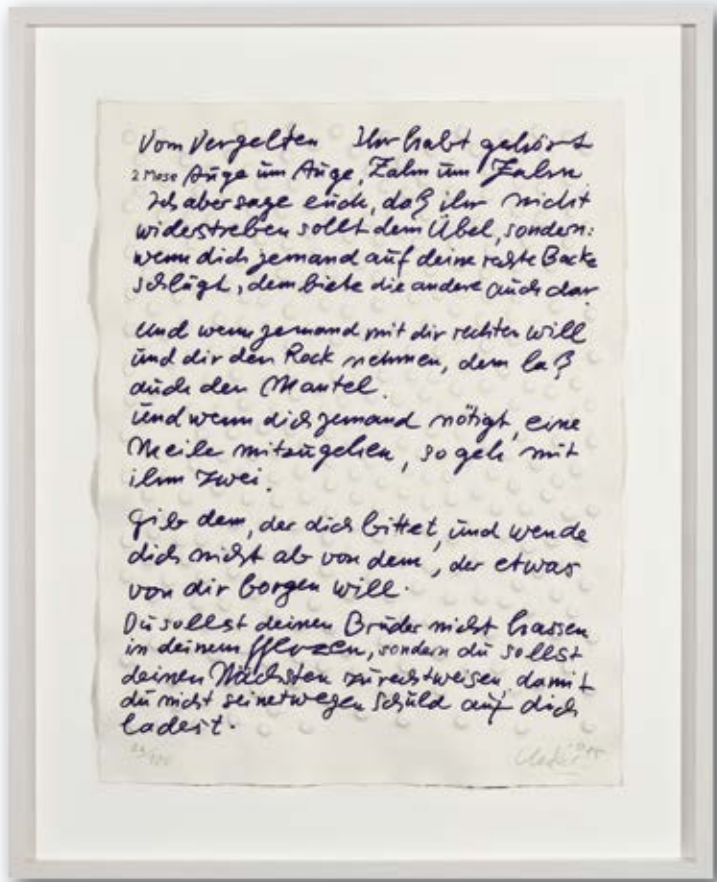 Vom Vergelten Ihr habt gehört
2 Mose Auge um Auge, Zahn um Zahn
Ich aber sage euch, daß ihr nicht
widerstreben sollt dem Übel, sondern:
wenn dich jemand auf deine rechte Backe
schlägt, dem biete die andere auch dar
Und wenn jemand mit dir rechten will
und dir den Rock nehmen, dem laß
auch den Mantel.
Und wenn dich jemand nötigt, eine
Meile mitzugehen, so geh mit
ihm zwei.
Gib dem, der dich bittet, und wende
dich nicht ab von dem, der etwas
von dir borgen will.
Du sollst deinen Bruder nicht hassen
in deinem Herzen, sondern du sollst
deinen Nächsten zurechtweisen, damit
du nicht seinetwegen Schuld auf dich
ladest.
/100 Uecker